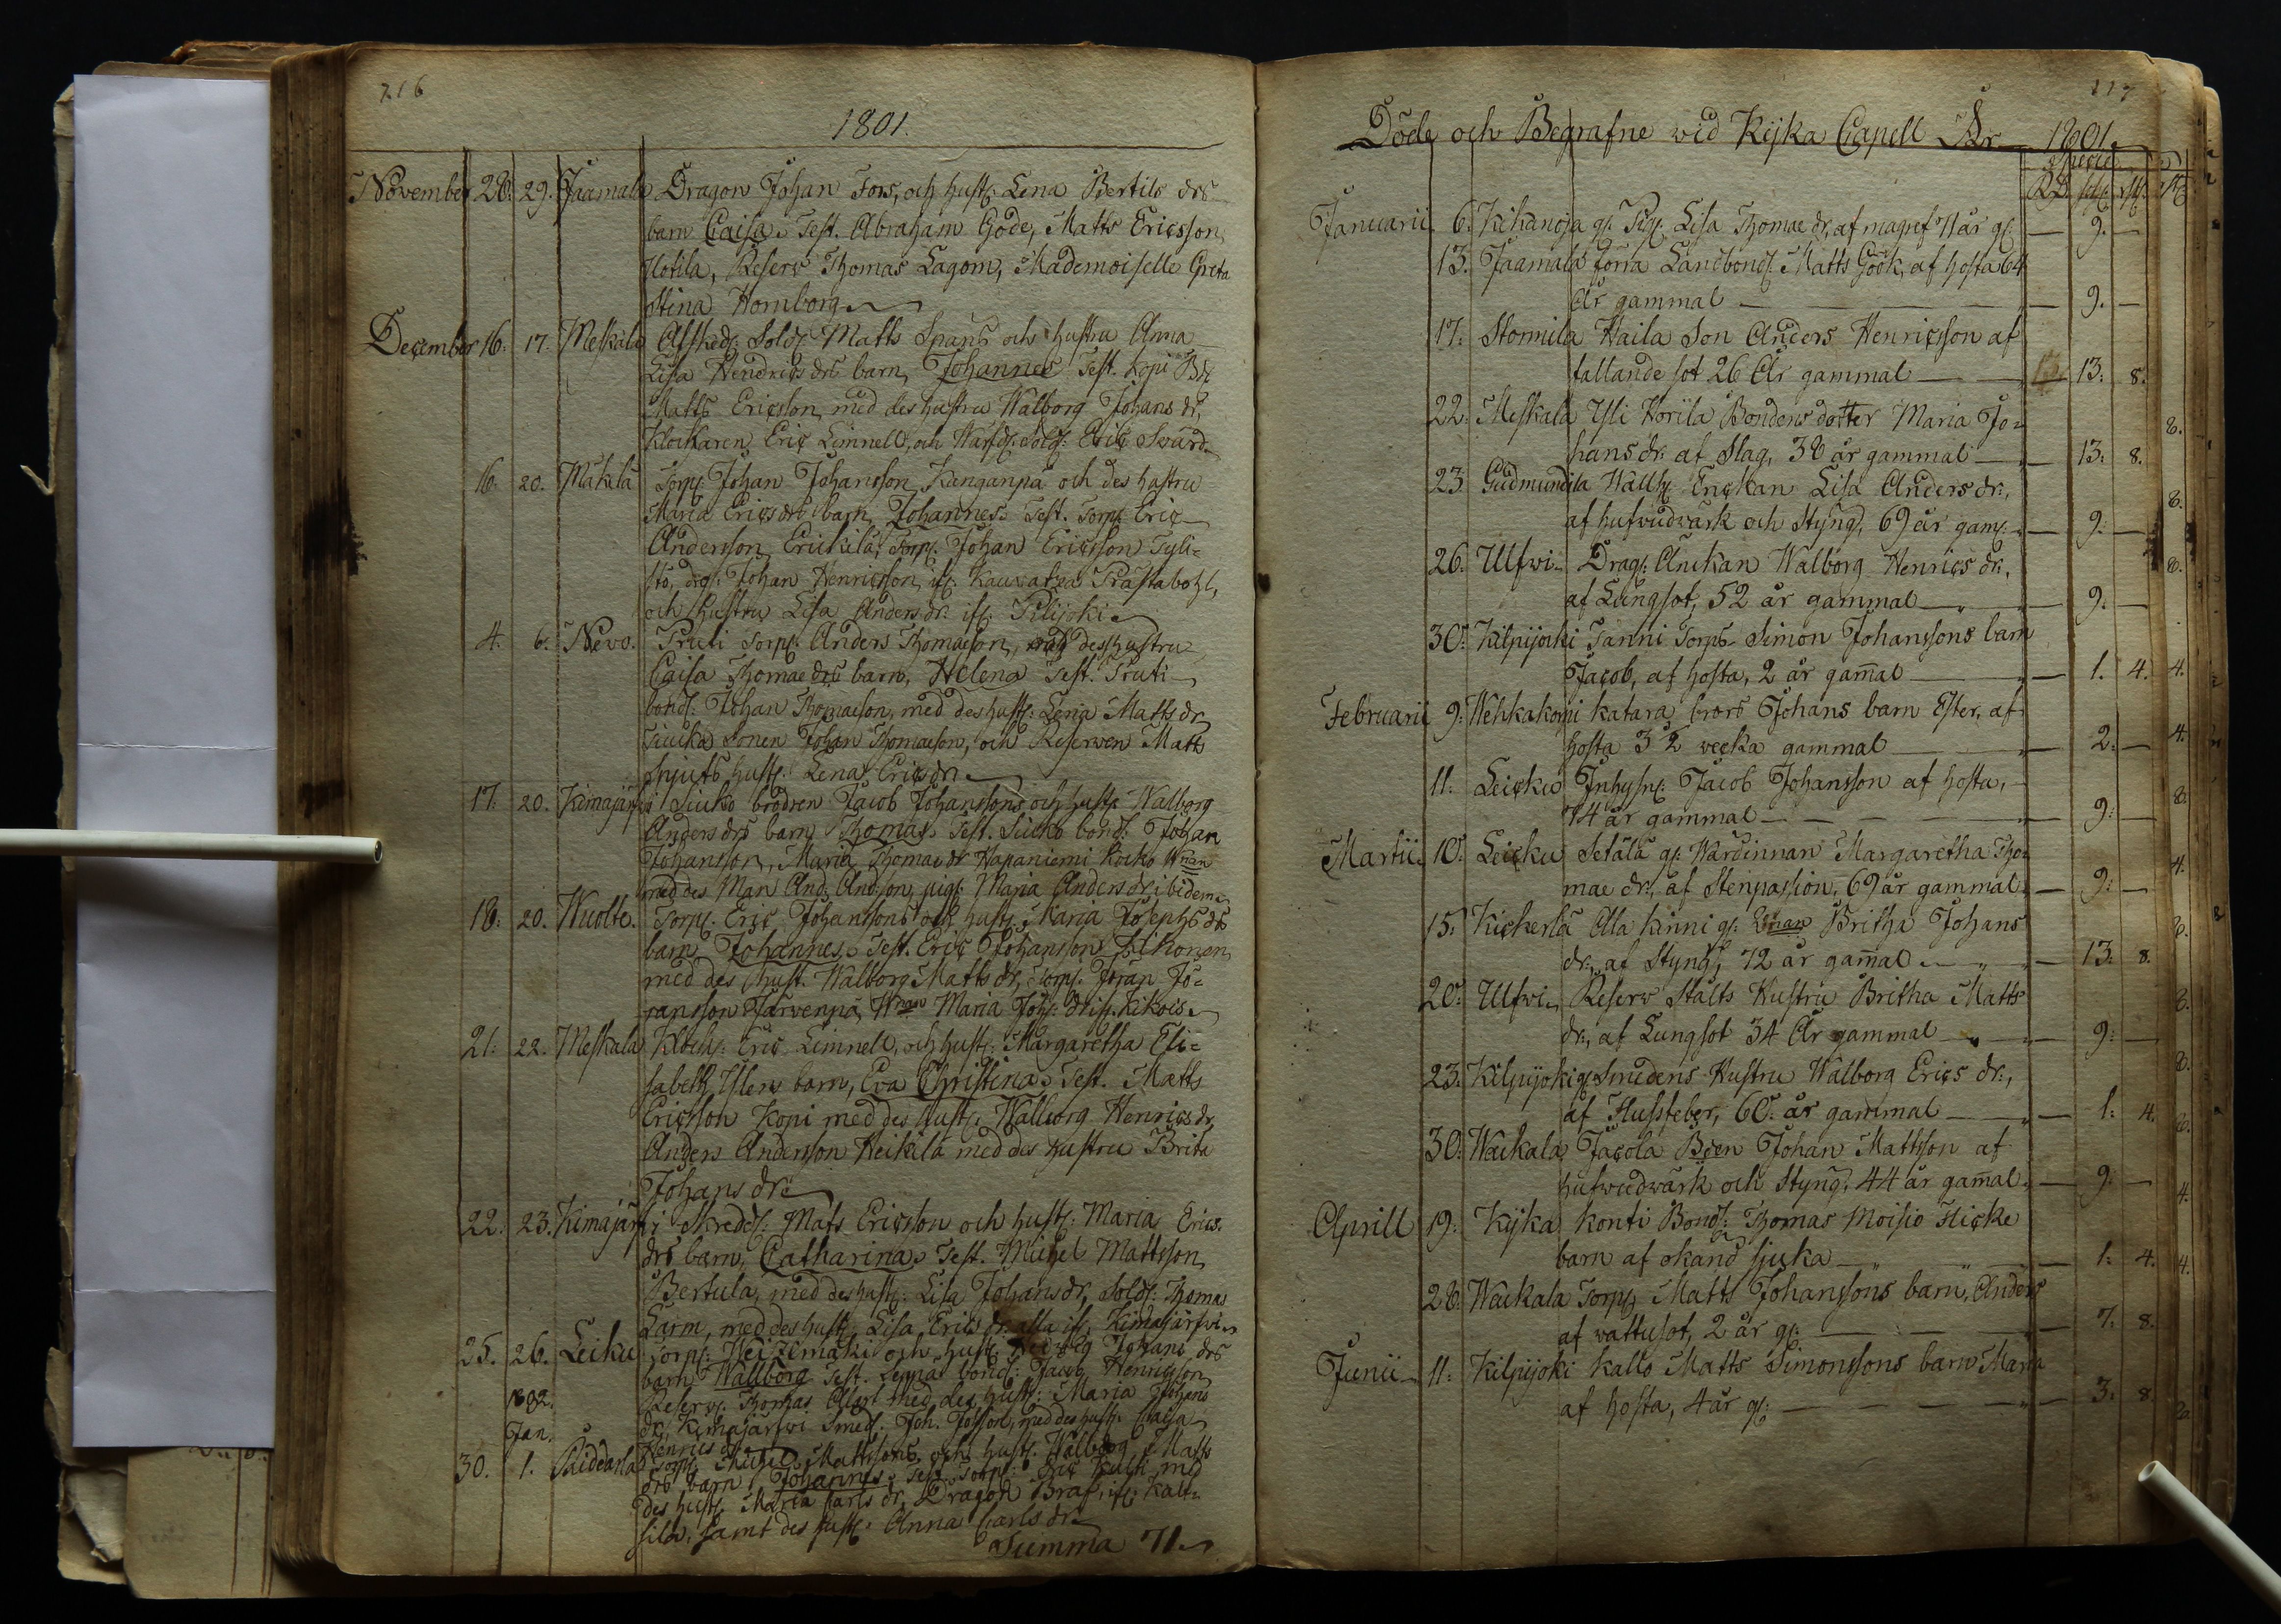 216
1801.
November 28. 29. Jaamala Dragon Johan Fors, och hust: Lena Bertils drs
barn Caisa. Test. Abraham Göde, Matts Ericsson
Uotila, Reserv Thomas Lagom, Mademoiselle Greta
Stina Homborg
December 16. 17. Meskala Afsked: Sold: Matts Spans och hustru Anna
Lisa Hendrics drs barn, Johannes Test. Kopi
Matts Ericsson med des hustru Walborg Johans dr,
Klockaren Eric Limnell, och Sold: Eric Swärd
16. 20. Mäkilä Torp: Johan Johansson Kanganpä och des hustru
Maria Erics drs barn, Johannes. Test. Torp: Eric
Andersson Erickilä, Torp: Johan Ericsson Tyli-
stö, drg: Johan Henricsson if: Kauvatsa Prästabohl,
och Hustru Lisa Anders dr. if: Pilijoki
4. 6. Nevo. Pruti Torp: Anders Thomaeson, med des hustru
Caisa Thomae drs barn, Helena Test. Pruti
bond: Johan Thomaeson, med des hust: Lena Matts dr
Sonen Johan Thomaeson, och Reserven Matts
Spjuts hust: Lena Erics dr
17. 20. Kimajärfvi Siuko brodren Jacob Johanssons och hust: Walborg
Anders drs barn Thomas. Test. Siuko bond: Johan
Johansson, Maria Thomae dr Hapaniemi
med des Man And: Andsson, pig: Maria Anders dr. ibidem
18. 20. Wuolte. Torp: Eric Johanssons och hust: Maria Josephs drs
barn Johannes. Test. Eric Johansson Kikonen
med des hust. Walborg Matts dr, Torp: Jöran Jö-
ransson Järvenpä, Maria Joh: dr if: Kikois
21. 22. Meskala Klock: Eric Limnell, och hust: Margaretha Eli-
sabeth Ylens barn, Eva Christina. Test. Matts
Ericsson Kopi med des hust: Walborg Henrics dr
Anders Andersson Heikilä med des Hustru Brita
Johans dr
22. 23. Kimajärfvi Skredd: Mats Ericsson och hust: Maria Erics
drs barn, Catharina. Test. Michel Mattsson
Bertula, med des hust: Lisa Johans dr, Sold: Thomas
Larm, med des hust: Lisa Erics dr. alla if: Kimajärfvi
25. 26. Leiku Torp: och hust: Johans drs
barn Wallborg Test. bond: Jacob Henricsson
1802. Reserv: Thomas med des hust: Maria Johans
Jan. dr, Kimajärfwi Smed: Joh. med des hust: Caisa
Henrics dr
30. 1. Torp: Michel Mattssons, och hust. Walborg Matts
drs barn Johannes. Test. Torp: Eric med
des hust: Maria Carls dr, Dragon Braf, if:
silä, samt des hust: Anna Carls dr
Summa 71.
217
Döde och Begrafne vid Kijka Capell År 1801.
Specie
RD. sch. rst.
Januarii 6. Kihanoja g: Pig: Lisa Thomae dr, af magref 71 år g: — 9. —
13. Jaamala förra Landbond: Matts Göök, af hosta 64
År gammal — 9. —
17. Stomila Haila Son Anders Henricsson af
fallande sot 26 År gammal — 13: 8.
22. Meskala Yli Korila Bondens dotter Maria Jo-
hans dr. af Slag, 38 år gammal — 13: 8.
23 Gudmundila Wallh: Enckan Lisa Anders dr:,
af hufvudvärk och Styng, 69 år gam: — 9. —
26. Ulfwi Drag: Änckan Walborg Henrics dr:,
af Lungsot, 52 år gammal — 9. —
30. Kilpijocki Tanni Torps Simon Johanssons barn
Jacob, af hosta, 2 år gam̄al — 1. 4.
Februarii 9. Wehkakorpi Katara brors Johans barn Ester, af
hosta 3½ wecka gammal — 2: —
11. Leicku Inhyses: Jacob Johansson af hosta,
74 år gammal — 9: —
Martii 10. Leicku Setälä g: Wärdinnan Margaretha Tho-
mae dr:, af Stenpassion, 69 år gammal — 9: —
15. Kickerlä Ala Kinni g: Britha Johans
dr:, af Styng, 72 år gam̄al — 13: 8.
20. Ulfwi Reserv Stålts Hustru Britha Matts
dr:, af Lungsot 34 År gammal — 9: —
23. Kilpijoki g: Smedens Hustru Walborg Erics dr:,
af Flussfeber, 60. år gammal — 1: 4.
30. Wackala Jacola Johan Mattsson af
hufvudvärk och Styng, 44 år gam̄al — 9: —
Aprill 19: Kijka Konti Bond: Thomas Moisio Flicke
barn af okänd sjuka — 1: 4.
28. Wackala Torp: Matts Johanssons barn, Anders
af wattusot, 2 år g: — 7: 8.
Junii 11. Kilpijoki Kallo Matts Simonssons barn Maria
af hosta, 4 år g: — 3: 8.